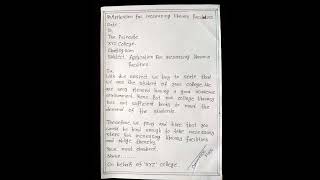 Application for increasing library facilities
Date
To,
The Principle
XYZ College.
Chattogram
Subject: Application for increasing library
facilities.
Sir,
With due respect, we beg to state that
we are the student of your college. We
are very pleased having a good academic
environment here. But our college library
has not sufficient books to meet the
demand of the students.
Therefore, we pray and hope that you
would be kind enough to take necessary
steps for increasing library facilities
and oblige thereby.
Your most obedient,
Name.......
On behalf of "XYZ" college.